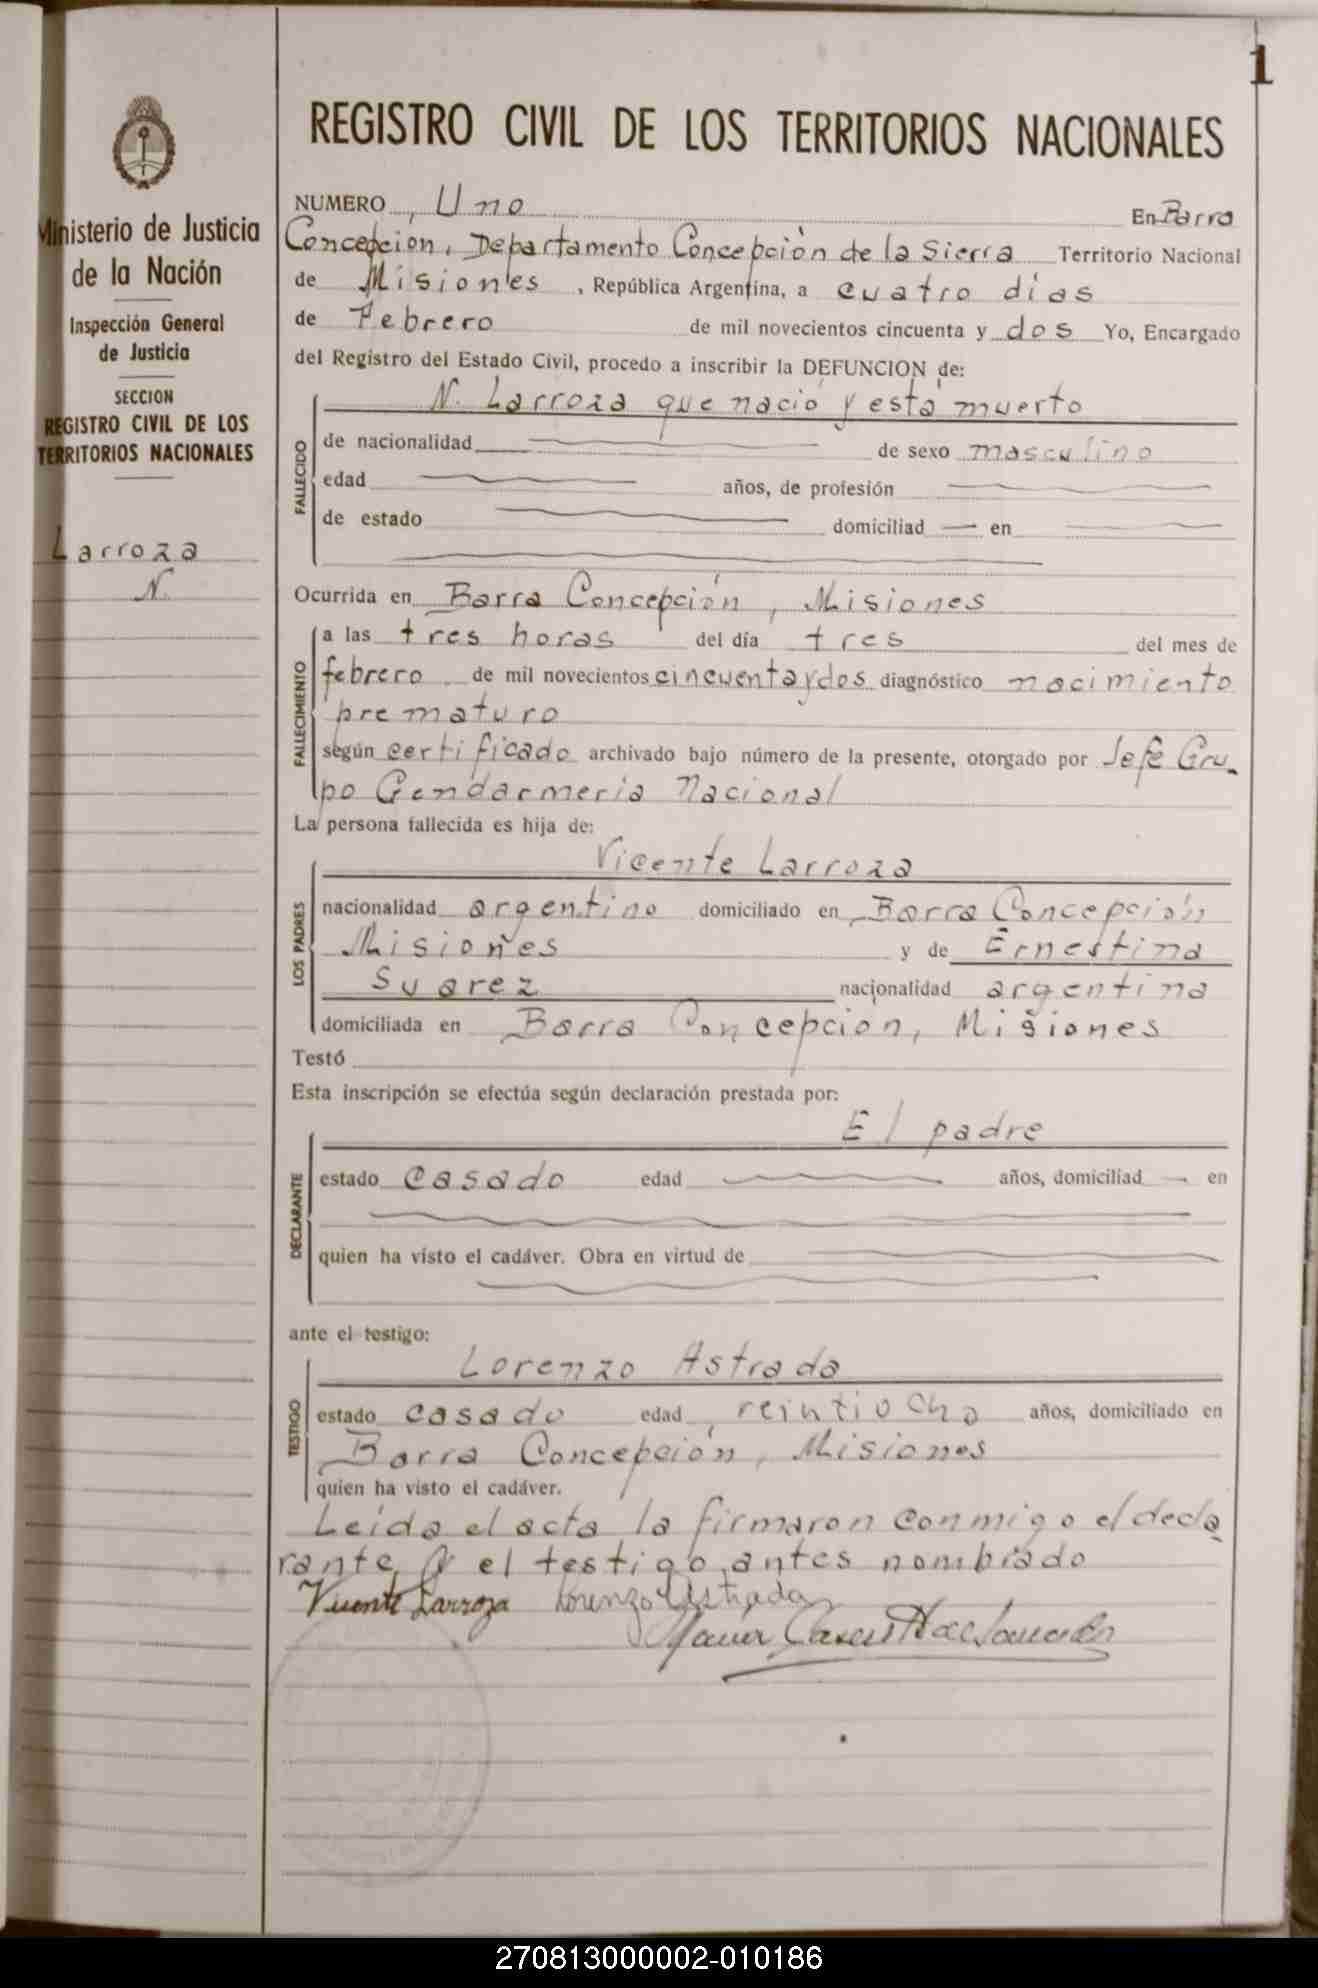 1
Ministerio de Justicia
de la Nación
Inspección General
de Justicia
SECCION
REGISTRO CIVIL DE LOS
TERRITORIOS NACIONALES
Larroza
N.
REGISTRO CIVIL DE LOS TERRITORIOS NACIONALES
NUMERO Uno En Barra
Concepción, Departamento Concepción de la Sierra Territorio Nacional
de Misiones, República Argentina, a cuatro días
de Febrero de mil novecientos cincuenta y dos Yo, Encargado
del Registro del Estado Civil, procedo a inscribir la DEFUNCION de:
N. Larroza que nació y está muerto
FALLECIDO
de nacionalidad de sexo masculino
edad años, de profesión
de estado domiciliad en
Ocurrida en Barra Concepción, Misiones
FALLECIMIENTO
a las tres horas del día tres del mes de
febrero de mil novecientos cincuenta y dos diagnóstico nacimiento
prematuro
según certificado archivado bajo número de la presente, otorgado por Jefe Gru-
po Gendarmeria Nacional
La persona fallecida es hija de:
LOS PADRES
Vicente Larroza
nacionalidad argentino domiciliado en Barra Concepción
Misiones y de Ernestina
Suarez nacionalidad argentina
domiciliada en Barra Concepción, Misiones
Testó
Esta inscripción se efectúa según declaración prestada por:
DECLARANTE
El padre
estado casado edad años, domiciliad en
quien ha visto el cadáver. Obra en virtud de
ante el testigo:
TESTIGO
Lorenzo Astrada
estado casado edad veintiocho años, domiciliado en
Barra Concepción, Misiones
quien ha visto el cadáver.
Leída el acta la firmaron conmigo el decla
rante y el testigo antes nombrado
Vicente Larroza Lorenzo Astrada
270813000002-010186